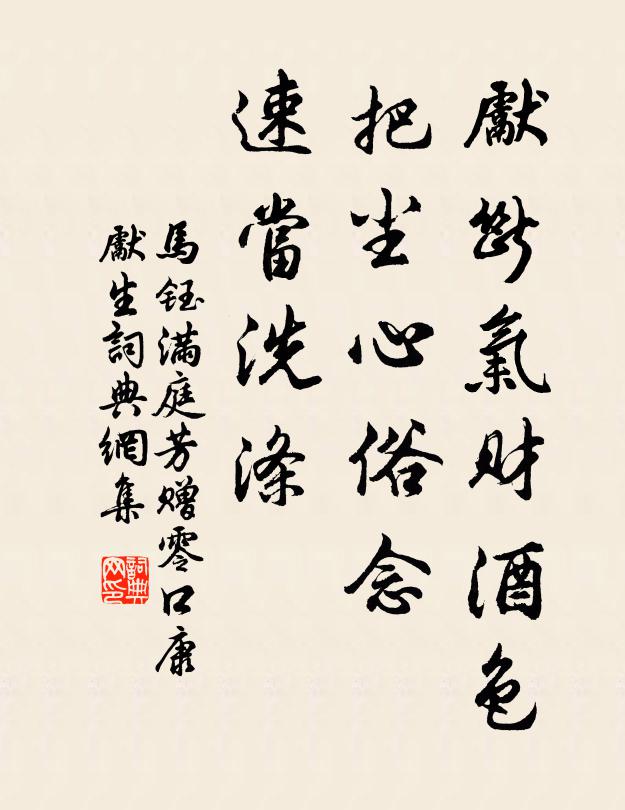 獻斷氣財酒色
把尘心俗念
速當洗滌
馬鈺满庭芳赠零口康
獻生詞典網集
詞典网印